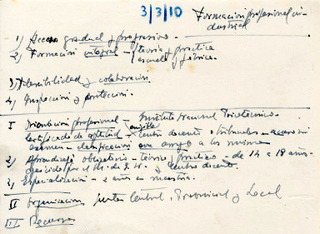 3/3/10
Formación profesional in-
dustrial
1) Acceso gradual y progresivo.
2) Formación integral - teoría y práctica
escuela y fábrica.
3) Flexibilidad y colaboración.
4) Inspección y protección.
I Orientación profesional - Instituto Nacional Psicotécnico.
Certificado de aptitud - centro docente - tribunales - acceso sin
examen - clasificación con arreglo a los mismos
2) Aprendizaje obligatorio - teórico, práctico - de 14 a 18 años
centro docente.
3) Especialización - 2 años en maestría.
II Organización Juntas Central, Provincial y Local
III Recursos